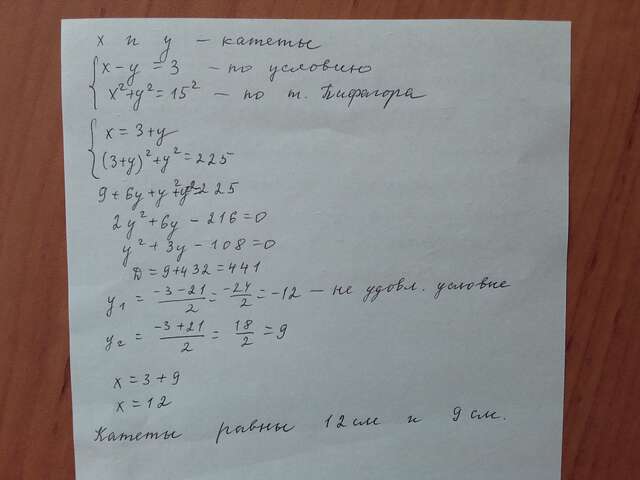 x и y – катеты
x – y = 3 – по условию
x² + y² = 15² – по т. Пифагора
x = 3 + y
(3+y)² + y² = 225
9 + 6y + y² + y² = 225
2y² + 6y – 216 = 0
y² + 3y – 108 = 0
D = 9 + 432 = 441
y₁ = (–3–21)/2 = –24/2 = –12 – не удовл. условие
y₂ = (–3+21)/2 = 18/2 = 9
x = 3 + 9
x = 12
Катеты равны 12 см и 9 см.